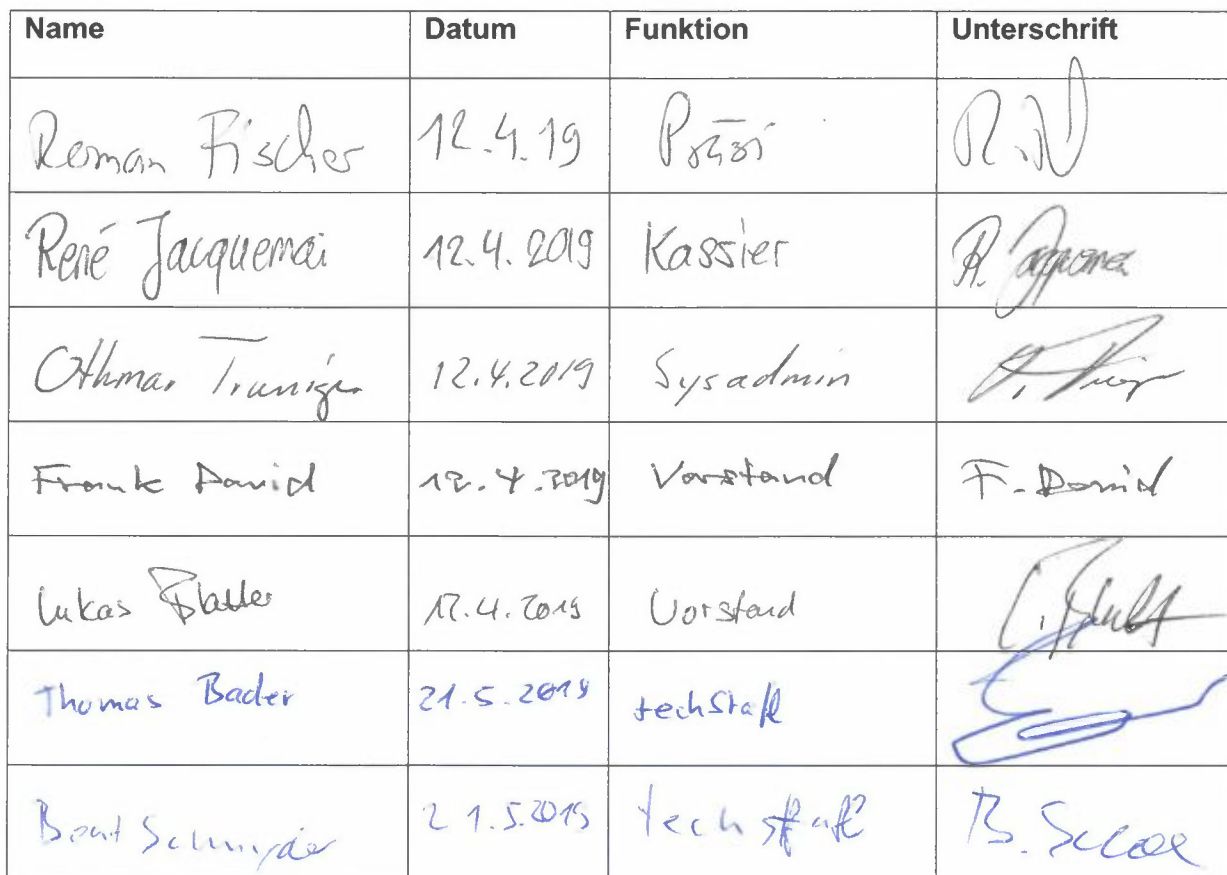 Name Datum Funktion Unterschrift
Roman Fischer 12.4.19 Präsi
René Jacquemai 12.4.2019 Kassier
Othmar Truniger 12.4.2019 Sysadmin
Frank David 12.4.2019 Vorstand F. David
Lukas Blatter 12.4.2019 Vorstand
Thomas Bader 21.5.2019 techstaff
Beat Schnyder 21.5.2019 techstaff